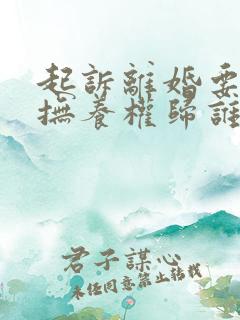 起訴離婚要
撫養權歸誰
君子謀心
未经同意禁止转载